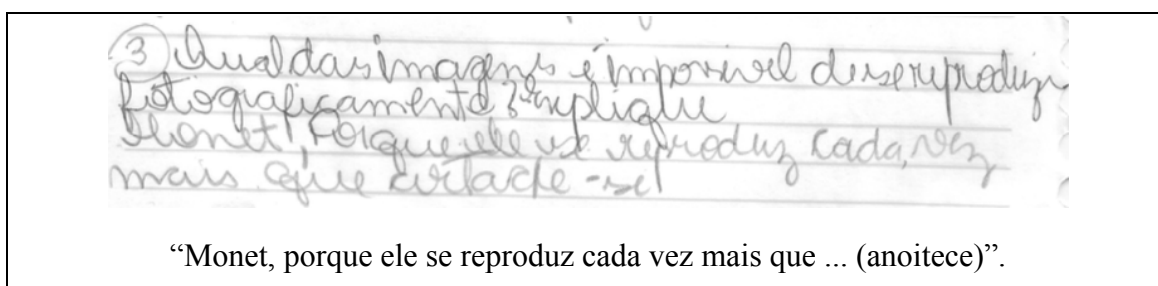 3 Qual das imagens é impossivel de se reproduzir
fotograficamente? explique
Monet, Porque ele se reproduz cada vez
mais que
“Monet, porque ele se reproduz cada vez mais que ... (anoitece)”.